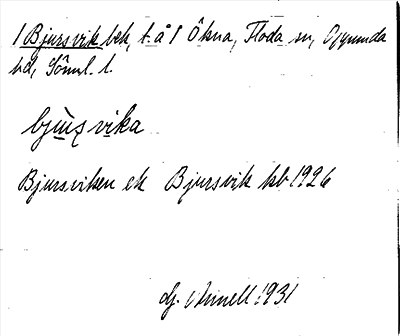 1 Bjursvik bek, t. å 1 Ökna, Floda sn, Oppunda
hd, Söml. l.
bjùʂvika
Bjursviken ek Bjursvik kb 1926
1931